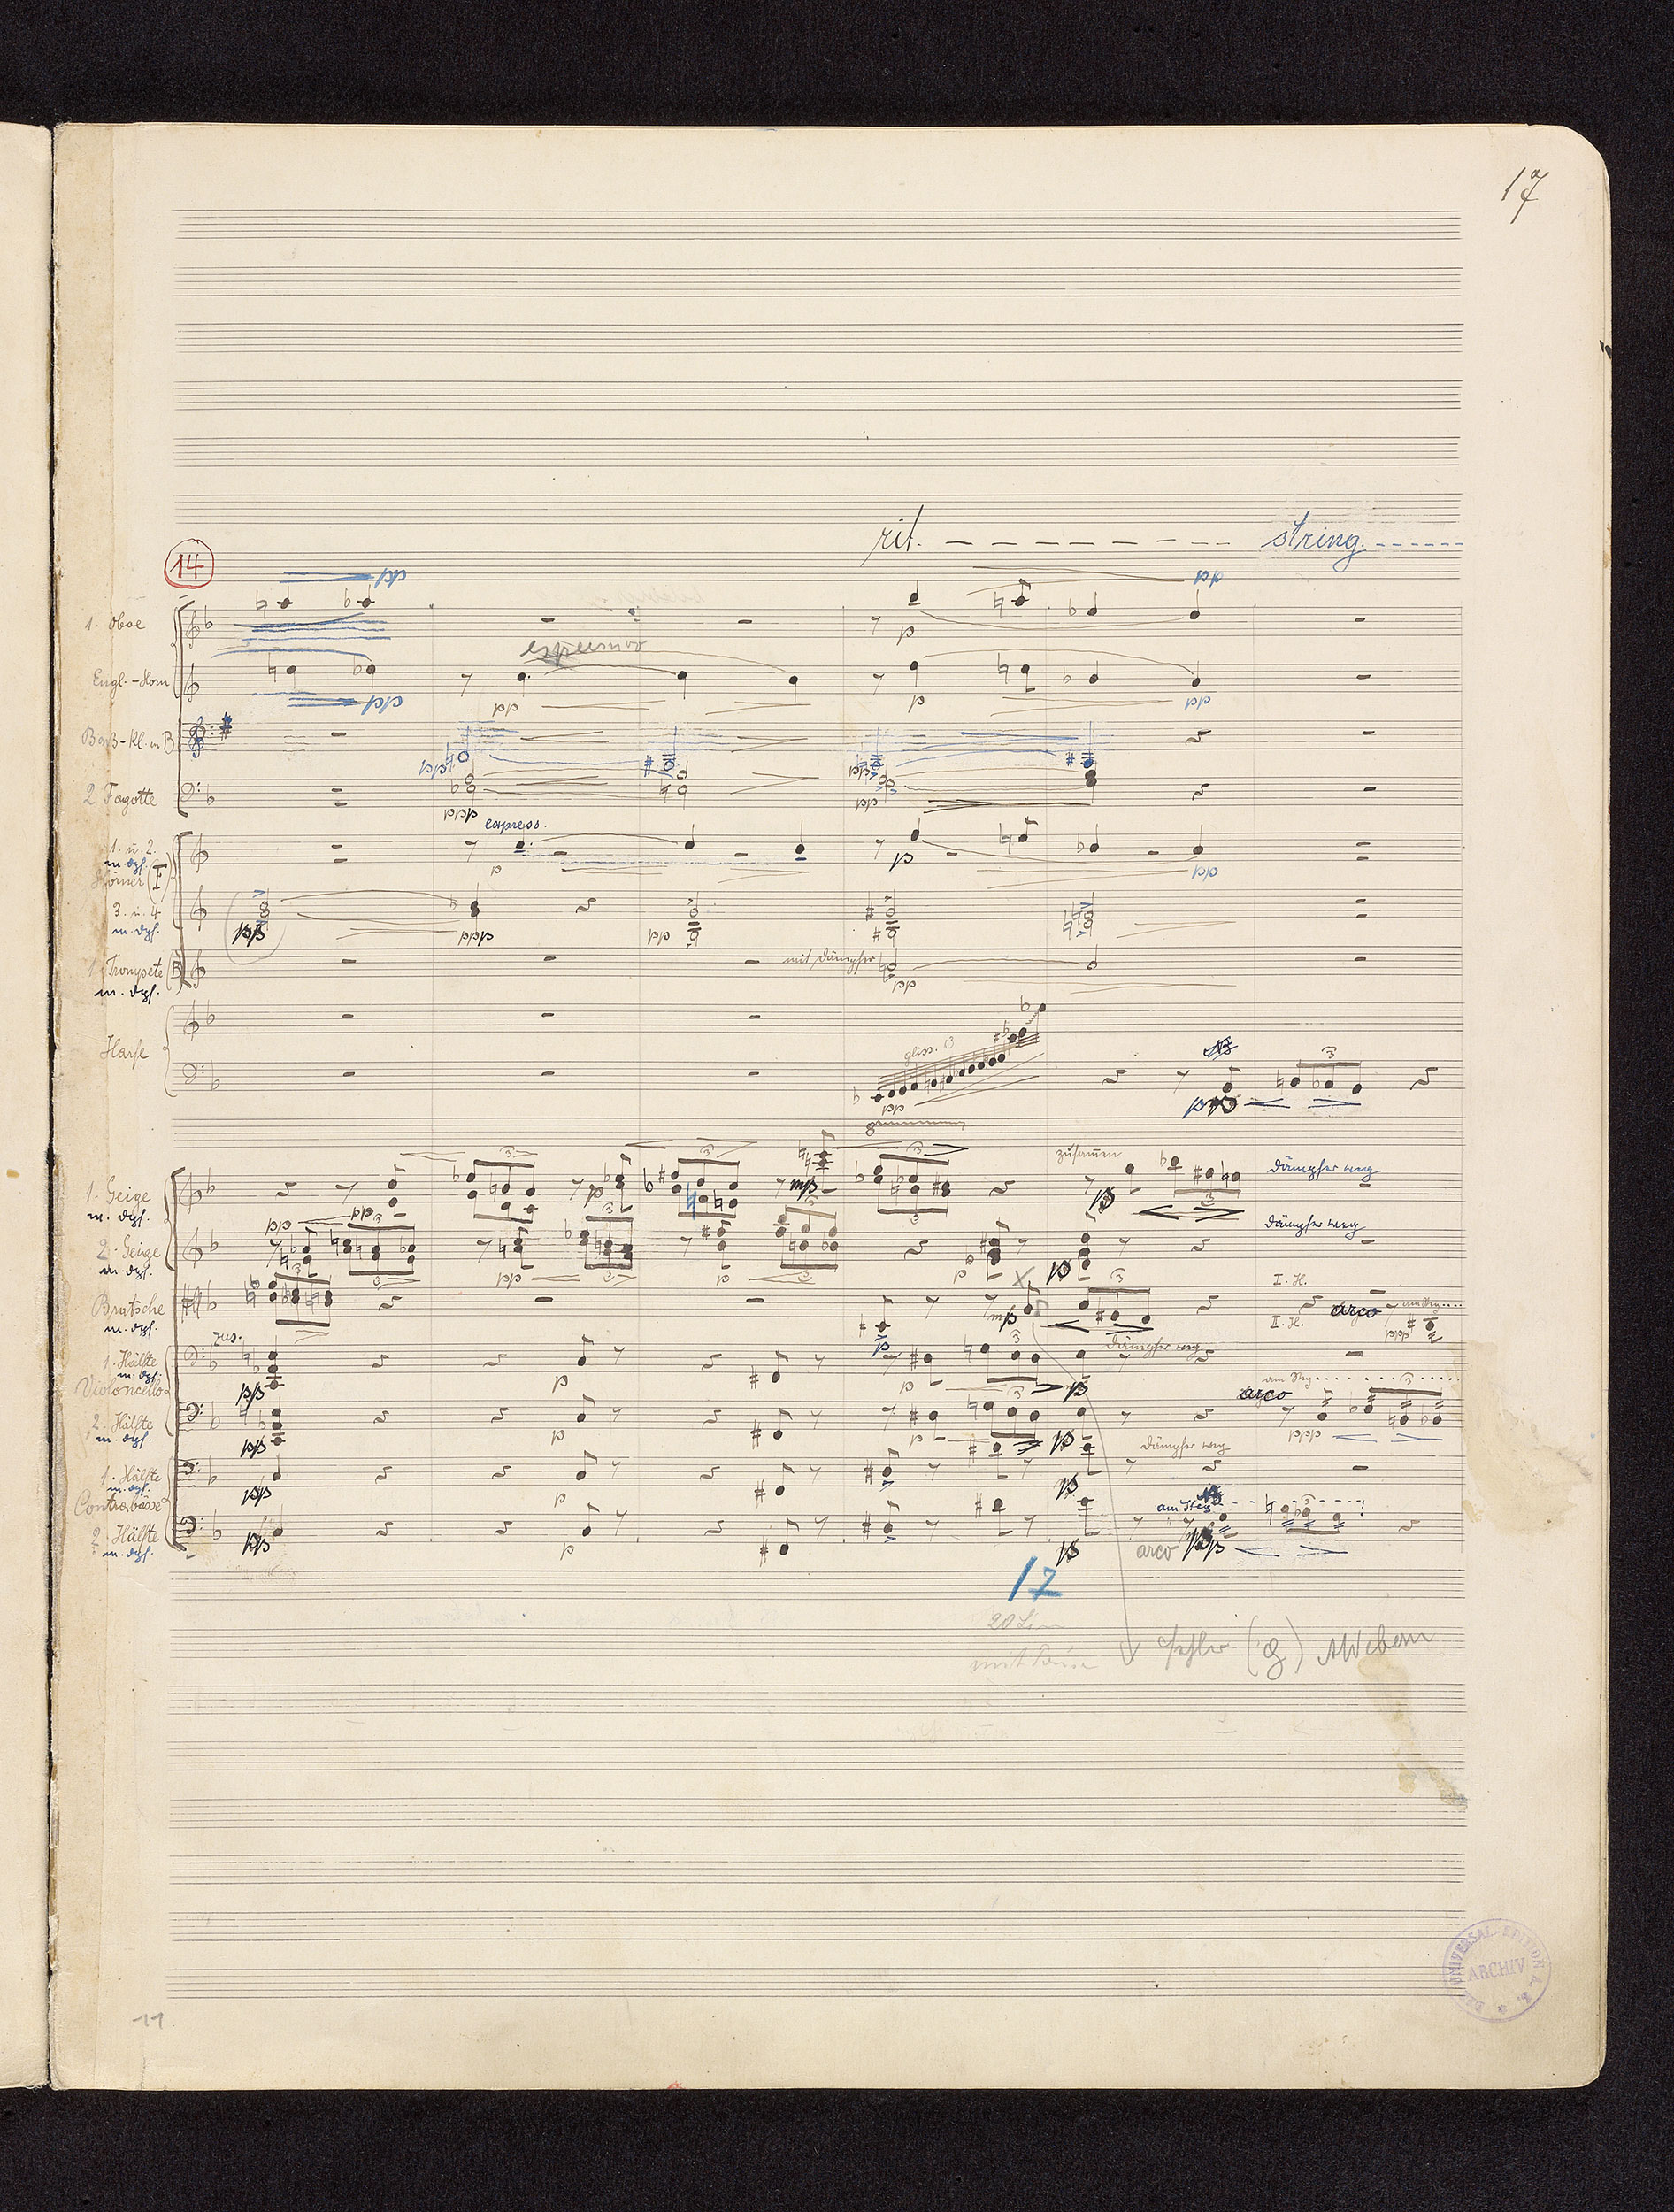 17
rit. string.
14
pp pp
1. Oboe
p
espressivo
Engl.-Horn
pp pp p pp
Baß-Kl. in B
pp ppp
2 Fagotte
ppp pp
express.
1. u. 2.
m. dpf.
Hörner (F)
p p pp
3. u. 4
m. dpf.
pp ppp pp
1. Trompete (B)
m. dpf.
mit Dämpfer
pp
Harfe
gliss.
pp
8
3
pp
zusammen
1. Geige
m. dpf.
3 p 3 mp 3 p 3
Dämpfer weg
pp pp
2. Geige
m. dpf.
3 pp 3 p 3 p
Dämpfer weg
Bratsche
m. dpf.
3 p mp 3
I. H.
II. H.
arco
am Steg
ppp
zus.
1. Hälfte
m. dpf.
pp p p 3 p
Dämpfer weg
Violoncello
2. Hälfte
m. dpf.
pp p p 3 p
am Steg
arco
ppp 3
1. Hälfte
m. dpf.
pp p p
Dämpfer weg
Contrabässe
2. Hälfte
m. dpf.
pp p p
am Steg
arco
3
12
mit
Fehler (g) AWebern
11
UNIVERSAL-EDITION A. G.
ARCHIV